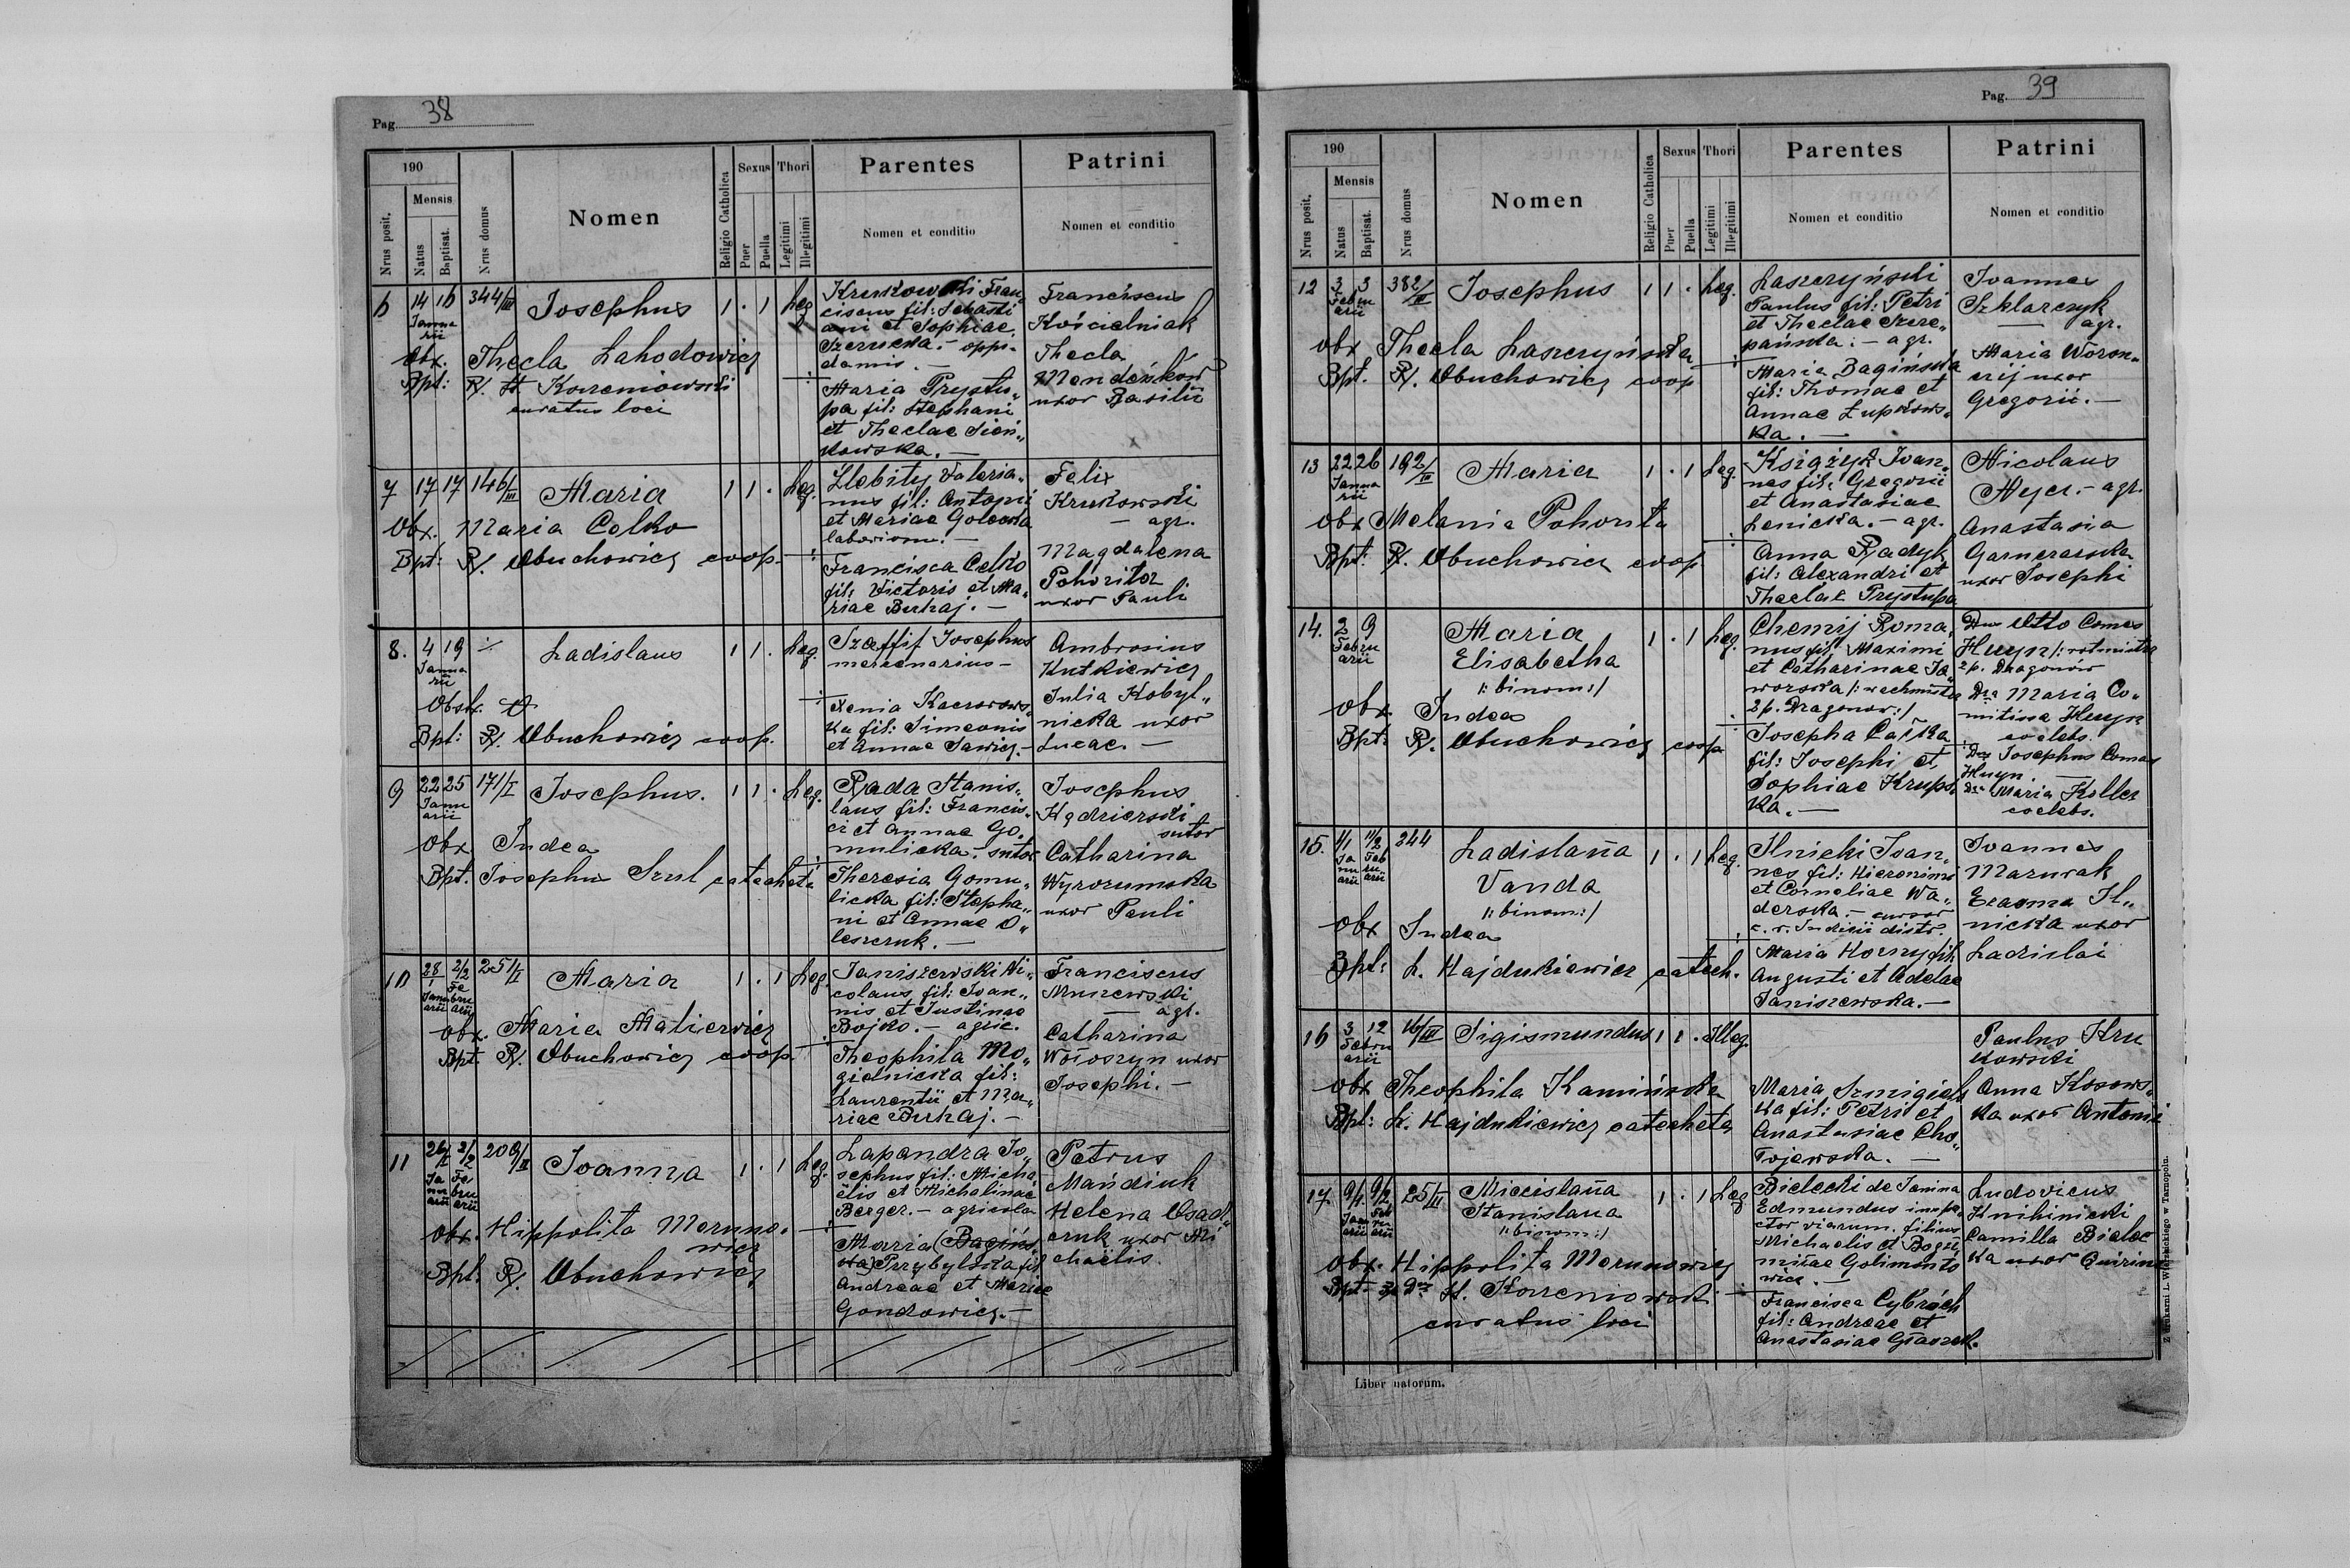 Pag. 38
190
Nrus posit.
Mensis
Natus
Baptisat.
Nrus domus
Nomen
Religio Catholica
Sexus
Puer
Puella
Thori
Legitimi
Illegitimi
Parentes
Nomen et conditio
Patrini
Nomen et conditio
6 14 16 344/III Josephus 1 . 1 Leg.
Janua
rii
Obx. Thecla Lahodowicz
Bpt: R. St. Korzeniowski
curatus loci
Krukowski Fran„
ciscus fil: Sebasti
ani et Sophiae
oppi„
danus. —
Maria Prystu„
pa fil: Stephani
et Theclae Sien„
kowska. —
Franciscus
Kościelniak
Thecla
uxor Basilii
7 17 17 146/III Maria 1 1 . Leg.
Obx. Maria Celko
Bpt: R. Obuchowicz coop.
Valeria„
nus fil: Antonii
et Mariae
Francisca Celko
fil: Victoris et Ma„
riae Buhaj. —
Felix
Krukowski
— agr.
Magdalena
Pohorila
uxor Pauli
8. 4 19 Ladislaus 1 1 . Leg.
Janua
rii
Obst.
Bpt: R. Obuchowicz coop.
Josephus
mercenarius —
Xenia
ka fil: Simeonis
et Annae Sawicz. —
Ambrosius
Kutkiewicz
Julia Kobyl„
nicka uxor
Lucae. —
9 22 25 171/I Josephus. 1 1 . Leg.
Janu
arii
Obx Judea
Bpt. Josephus Szul catecheta
Rada Stanis„
laus fil: Francis„
ci et Annae Go„
mulicka. — sutor
Theresia Gomu„
licka fil: Stepha„
ni et Annae O„
leszczuk. —
Josephus
Kędzierski
sutor
Catharina
Wyrozumska
uxor Pauli
10 28/1 2/2 251/I Maria 1 . 1 Leg.
Janu
arii
Fe
bru
arii
Obx. Maria Matierwicz
Bpt. R. Obuchowicz coop.
Janiszewski Ni„
colaus fil: Joan„
nis et Justinae
Bojko. — agric.
Theophila Mo„
gielnicka fil:
Laurentii et Ma„
riae Buhaj. —
Franciscus
Muszewski
— agr.
Catharina
Wołoszyn uxor
Josephi. —
11 26/1 2/2 209/II Joanna 1 . 1 Leg.
Ja
nu
arii
Fe
bru
arii
Obx. Hippolita Moruno„
wicz
Bpt: R. Obuchowicz
Lapandra Jo„
sephus fil: Micha
ëlis et Michalinae
Berger. — agricola
Maria (Bagińs„
ka) Przybylska fil
Andreae et Mariae
Gondowicz. —
Petrus
Mańdiuk
Helena Osad„
czuk uxor Mi
chaëlis.
Pag. 39
190
Nrus posit.
Mensis
Natus
Baptisat.
Nrus domus
Nomen
Religio Catholica
Sexus
Puer
Puella
Thori
Legitimi
Illegitimi
Parentes
Nomen et conditio
Patrini
Nomen et conditio
12 3 3 382/III Josephus 1 1 . Leg.
Febru
arii
Obx Thecla Laszczyńska
Bpt. R. Obuchowicz coop
Laszczyński
Paulus fil: Petri
et Theclae Szcze„
pańska. — agr.
Maria Bagińska
fil: Thomae et
Annae Łupkows„
ka. —
Joannes
Szklarczyk
— agr.
Maria Woron„
crij uxor
Gregorii. —
13 22 26 192/III Maria 1 . 1 Leg.
Janua
rii
Obx Melania Pohorila
Bpt: R. Obuchowicz coop
Książyk Joan„
nes fil: Gregorii
et Anastasiae
Lenicka. — agr.
Anna Radyk
fil: Alexandri et
Theclae Prystupa
Nicolaus
Myer. — agr.
Anastasia
Garnerarska
uxor Josephi
14. 2 9 Maria 1 . 1 Leg.
Febru
arii
Elisabetha
/: binom :/
Obx Judea
Bpt: R. Obuchowicz coop
Chemij Roma„
nus fil: Maximi
et Catharinae Ja„
worska /: wachmistrz
2 p. Dragonów :/
Josepha Cařka
fil: Josephi et
Sophiae Krups„
ka. —
Dnus Otto Comes
Huyn /: rotmistrz
2 p. Dragonów
Dna Maria Co„
mitissa Huyn
coelebs.
Dns Josephus Comes
Huyn. —
Dna Maria Keller
coelebs.
15. 4/1 11/2 244 Ladislaua 1 . 1 Leg.
Ja
nu
arii
Feb
ru„
arii
Vanda
/: binom :/
Obx Judea
Bpt: L. Hajdukiewicz catech.
Ilnicki Joan„
nes fil: Hieronimi
et Corneliae Wa„
derska. — cursor
c. r. Judicii distr.
Maria Hornyfil
Augusti et Adelae
Janiszewska. —
Joannes
Maruwak
Erasma Il„
nicka uxor
Ladislai
16 3 12 16/III Sigismundus 1 1 . Illeg.
Febru
arii
Obx Theophila Kamińska
Bpt: L. Hajdukiewicz catecheta
Maria Szmigiels
ka fil: Petri et
Anastasiae Cho„
Tojewska. —
Paulus Kru
kowski
Anna Kosows„
ka uxor Antonii
17 9/1 9/2 25/II Miecislaua 1 . 1 Leg
Jan
nu
arii
Feb
ru
arii
Stanislaua
/: binom :/
Obx. Hippolita Morunowicz
Bpt — St. Korzeniowski
curatus loci
Bielecki de Janina
Edmundus inspe„
ctor viarum. filius
Michaelis et Bogu„
milae Golimonto
wicz. —
Francisca Cybrúch
fil: Andreae et
Anastasiae Głaszek.
Ludovicus
Knihinicki
Camilla Bielec
ka uxor Quirini
Liber natorum.
Z drukarni L. Wierzbickiego w Tarnopolu.